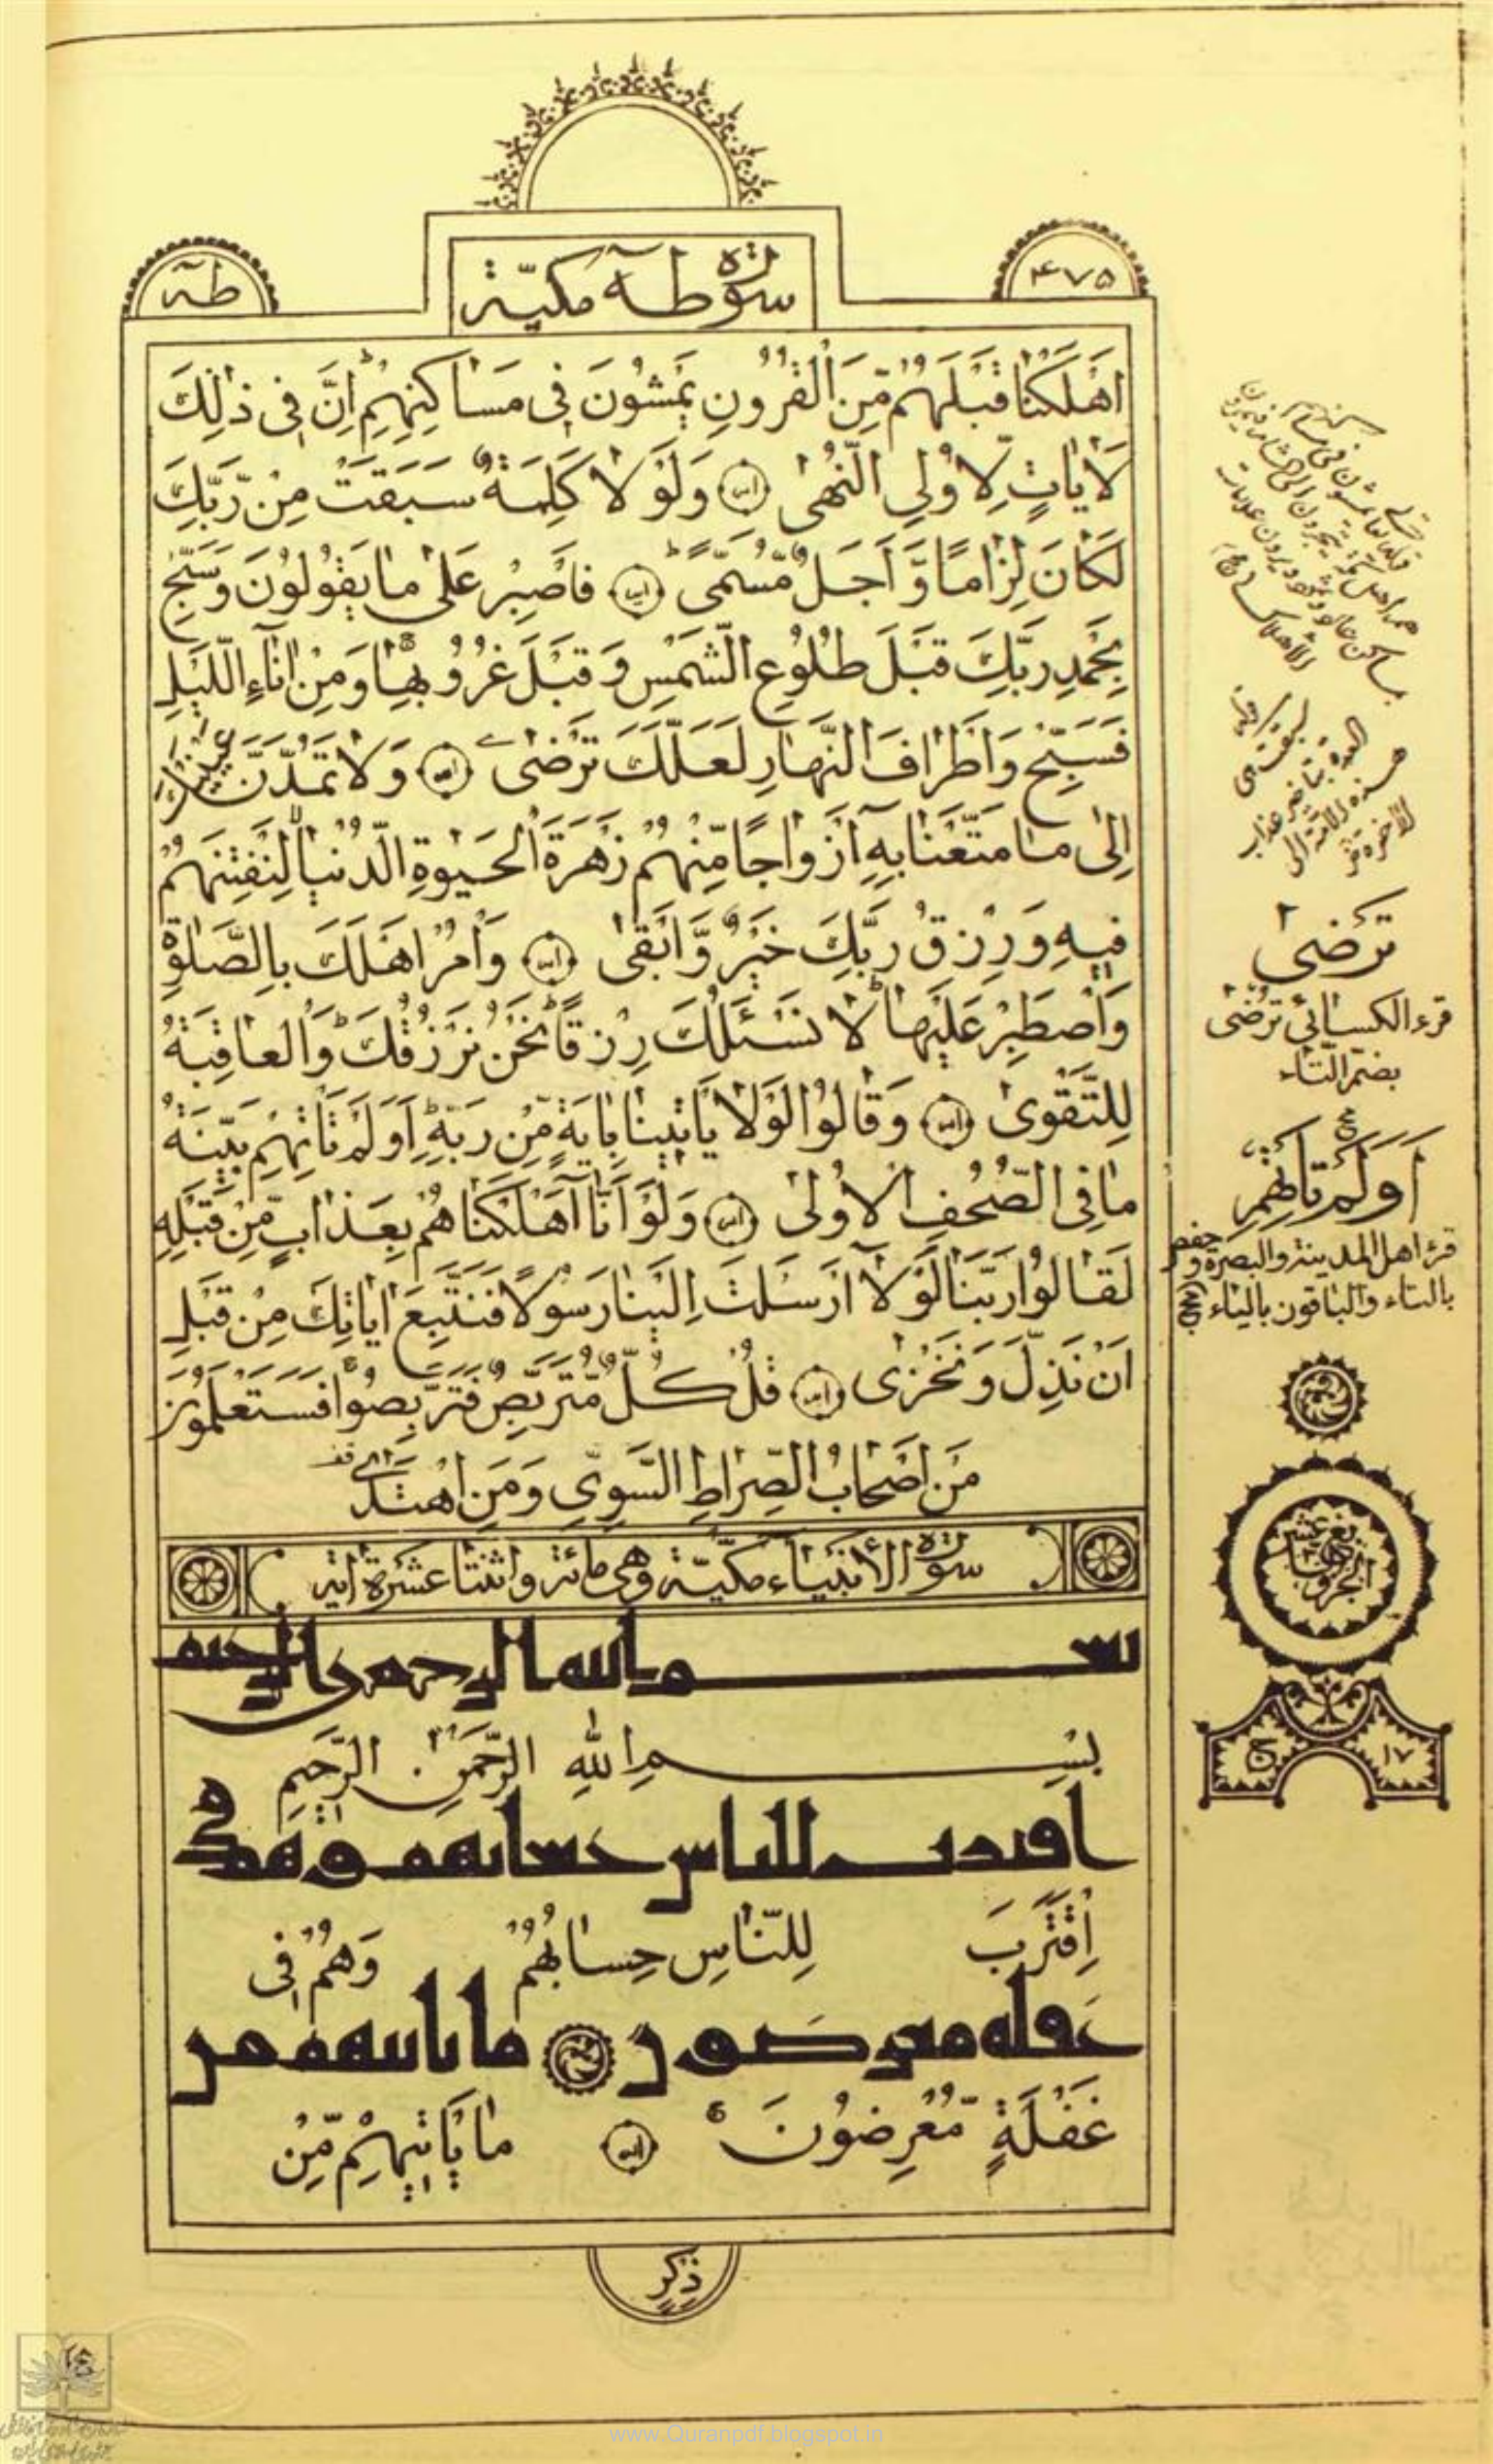 ۴۷۵
سورة طه مكيّة
طه
اَهْلَكْنَا قَبْلَهُمْ مِّنَ الْقُرُونِ يَمْشُونَ فِى مَسَاكِنِهِمْ ط اِنَّ فِى ذٰلِكَ
لَاٰيَاتٍ لِاُولِى النُّهٰى وَلَوْ لَا كَلِمَةٌ سَبَقَتْ مِنْ رَّبِّكَ
لَكَانَ لِزَامًا وَّ اَجَلٌ مُّسَمًّى ط فَاصْبِرْ عَلٰى مَا يَقُولُونَ وَ سَبِّحْ
بِحَمْدِ رَبِّكَ قَبْلَ طُلُوعِ الشَّمْسِ وَ قَبْلَ غُرُوبِهَا وَ مِنْ اٰنَآءِ الَّيْلِ
فَسَبِّحْ وَ اَطْرَافَ النَّهَارِ لَعَلَّكَ تَرْضٰى وَ لَا تَمُدَّنَّ عَيْنَيْكَ
اِلٰى مَا مَتَّعْنَا بِهٖٓ اَزْوَاجًا مِّنْهُمْ زَهْرَةَ الْحَيٰوةِ الدُّنْيَا لِنَفْتِنَهُمْ
فِيهِ وَ رِزْقُ رَبِّكَ خَيْرٌ وَّ اَبْقٰى وَ اْمُرْ اَهْلَكَ بِالصَّلٰوةِ
وَ اصْطَبِرْ عَلَيْهَا ط لَا نَسْـَٔلُكَ رِزْقًا ط نَحْنُ نَرْزُقُكَ ط وَ الْعَاقِبَةُ
لِلتَّقْوٰى وَ قَالُوا لَوْلَا يَاْتِينَا بِاٰيَةٍ مِّنْ رَبِّهِ ط اَوَلَمْ تَاْتِهِمْ بَيِّنَةُ
مَا فِى الصُّحُفِ الْاُولٰى وَ لَوْ اَنَّآ اَهْلَكْنَاهُمْ بِعَذَابٍ مِّنْ قَبْلِهِ
لَقَالُوا رَبَّنَا لَوْ لَآ اَرْسَلْتَ اِلَيْنَا رَسُولًا فَنَتَّبِعَ اٰيَاتِكَ مِنْ قَبْلِ
اَنْ نَذِلَّ وَ نَخْزٰى قُلْ كُلٌّ مُّتَرَبِّصٌ فَتَرَبَّصُوا فَسَتَعْلَمُونَ
مَنْ اَصْحَابُ الصِّرَاطِ السَّوِىِّ وَ مَنِ اهْتَدٰى
سورة الأنبياء مكيّة وهى مائة واثنتا عشرة اية
بسم الله الرحمن الرحيم
بِسْمِ اللهِ الرَّحْمٰنِ الرَّحِيمِ
اقترب للناس حسابهم وهم في
اِقْتَرَبَ لِلنَّاسِ حِسَابُهُمْ وَهُمْ فِى
غفلة معرضون ما ياتيهم من
غَفْلَةٍ مُّعْرِضُونَ مَا يَاْتِيهِمْ مِّنْ
ذِكْرٍ
تَرْضٰى
قرء الكسائي تُرْضٰى
بضم التاء
اَوَلَمْ تَاْتِهِمْ
قرء اهل المدينة والبصرة وحفص
بالتاء والباقون بالياء
۱۷
www.Quranpdf.blogspot.in